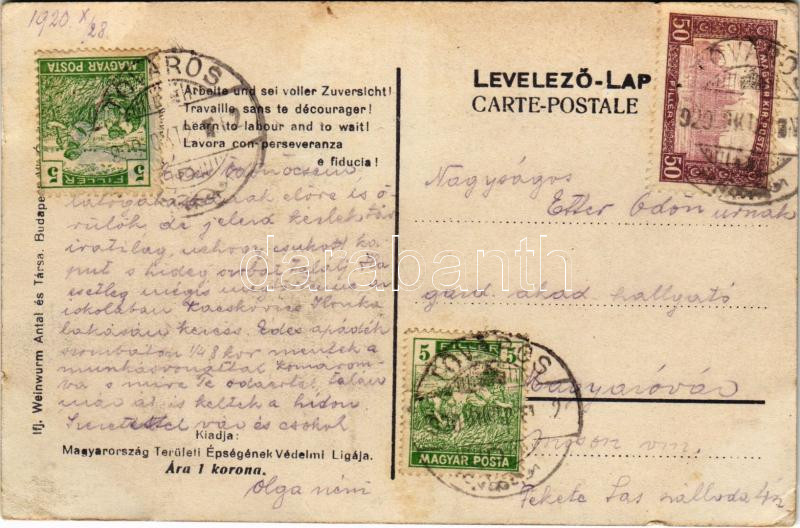 1920. X/28.
Arbeite und sei voller Zuversicht!
Travaille sans te décourager!
Learn to labour and to wait!
Lavora con perseveranza
e fiducia!
LEVELEZŐ-LAP
CARTE-POSTALE
5 FILLÉR
MAGYAR POSTA
50 FILLÉR 50
MAGYAR KIR. POSTA
TÓVÁROS
Ifj. Weinwurm Antal és Társa. Budapest
látogatásának előre is ö-
rülök, de jelend kérlek tá-
viratilag, nehogy csukott ka-
put s hideg szobát találj. Ha
esetleg mégis
iskolában Kacskovics Ilonka
lakásán keress. Édes apádék
szombaton 1/4 8 kor mentek a
munkásvonattal Komárom-
ba s mire Te odaértél, talán
már át is keltek a hídon
Szeretettel vár és csókol
Olga néni
Nagyságos
Etter Ödön úrnak
gazd. akad. hallgató
Magyaróvár
Moson vm.
Fekete Sas szálloda
5 FILLÉR 5
MAGYAR POSTA
TÓVÁROS
Kiadja:
Magyarország Területi Épségének Védelmi Ligája.
Ára 1 korona.
darabanth